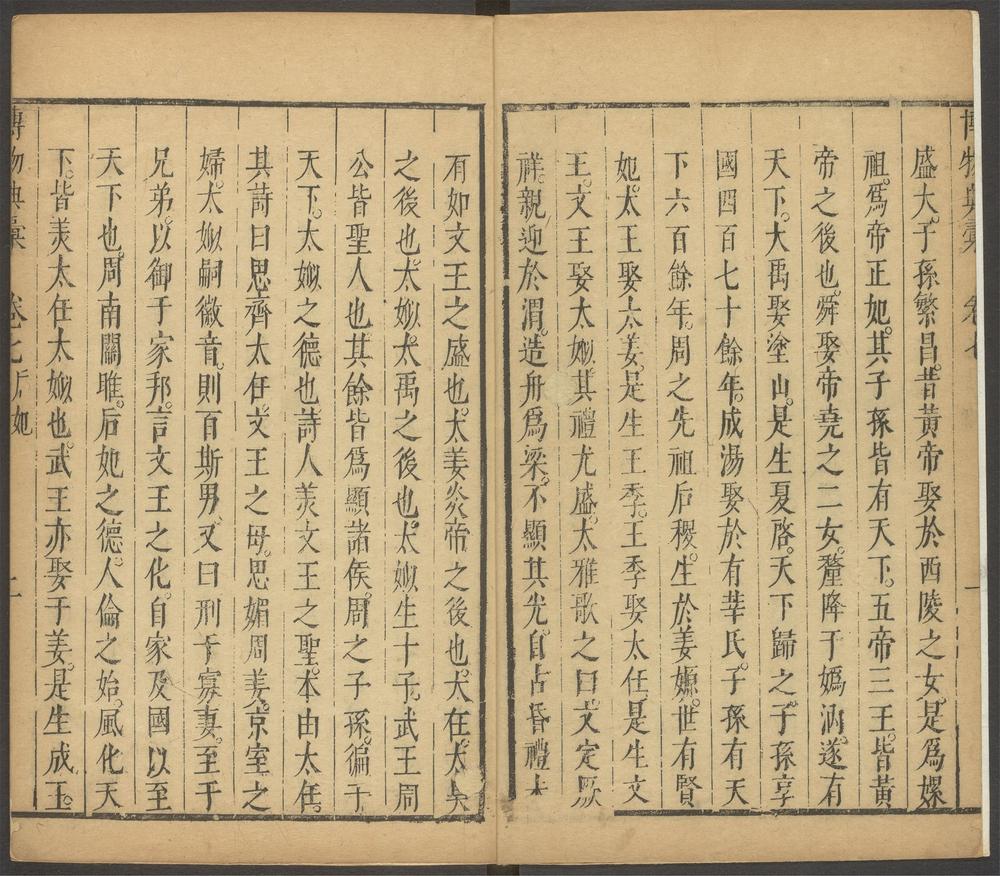 博物典彙 卷七
盛大。子孫繁昌。昔黃帝娶於西陵之女。是爲嫘
祖。爲帝正妃。其子孫皆有天下。五帝三王。皆黃
帝之後也。舜娶帝堯之二女。釐降于嬀汭。遂有
天下。大禹娶塗山。是生夏啓。天下歸之。子孫享
國四百七十餘年。成湯娶於有莘氏。子孫有天
下六百餘年。周之先祖后稷。生於姜嫄。世有賢
妃。太王娶太姜。是生王季。王季娶太任。是生文
王。文王娶太姒。其禮尤盛。大雅歌之曰。文定厥
祥。親迎於渭。造舟爲梁。不顯其光。自占昏禮
有如文王之盛也。太姜炎帝之後也。大任。
之後也。太姒。大禹之後也。太姒生十子。武王周
公皆聖人也。其餘皆爲顯諸侯。周之子孫。徧于
天下。太姒之德也。詩人美文王之聖。本由太任。
其詩曰思齊太任。文王之母。思媚周姜。京室之
婦。太姒嗣徽音。則百斯男。又曰刑于寡妻。至于
兄弟。以御于家邦。言文王之化。自家及國以至
天下也。周南關雎。后妃之德。人倫之始。風化天
下。皆美太任太姒也。武王亦娶于姜。是生成王。
博物典彙 卷七后妃